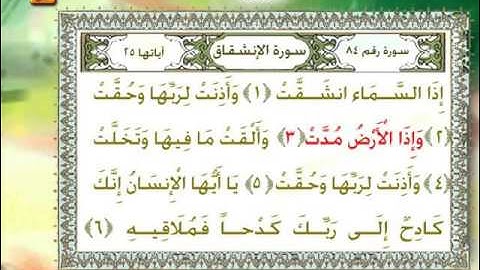 سورة رقم ٨٤ سورة الإنشقاق آياتها ٢٥
إِذَا السَّمَاء انشَقَّتْ ﴿١﴾ وَأَذِنَتْ لِرَبِّهَا وَحُقَّتْ
﴿٢﴾ وَإِذَا الْأَرْضُ مُدَّتْ ﴿٣﴾ وَأَلْقَتْ مَا فِيهَا وَتَخَلَّتْ
﴿٤﴾ وَأَذِنَتْ لِرَبِّهَا وَحُقَّتْ ﴿٥﴾ يَا أَيُّهَا الْإِنسَانُ إِنَّكَ
كَادِحٌ إِلَى رَبِّكَ كَدْحاً فَمُلَاقِيهِ ﴿٦﴾